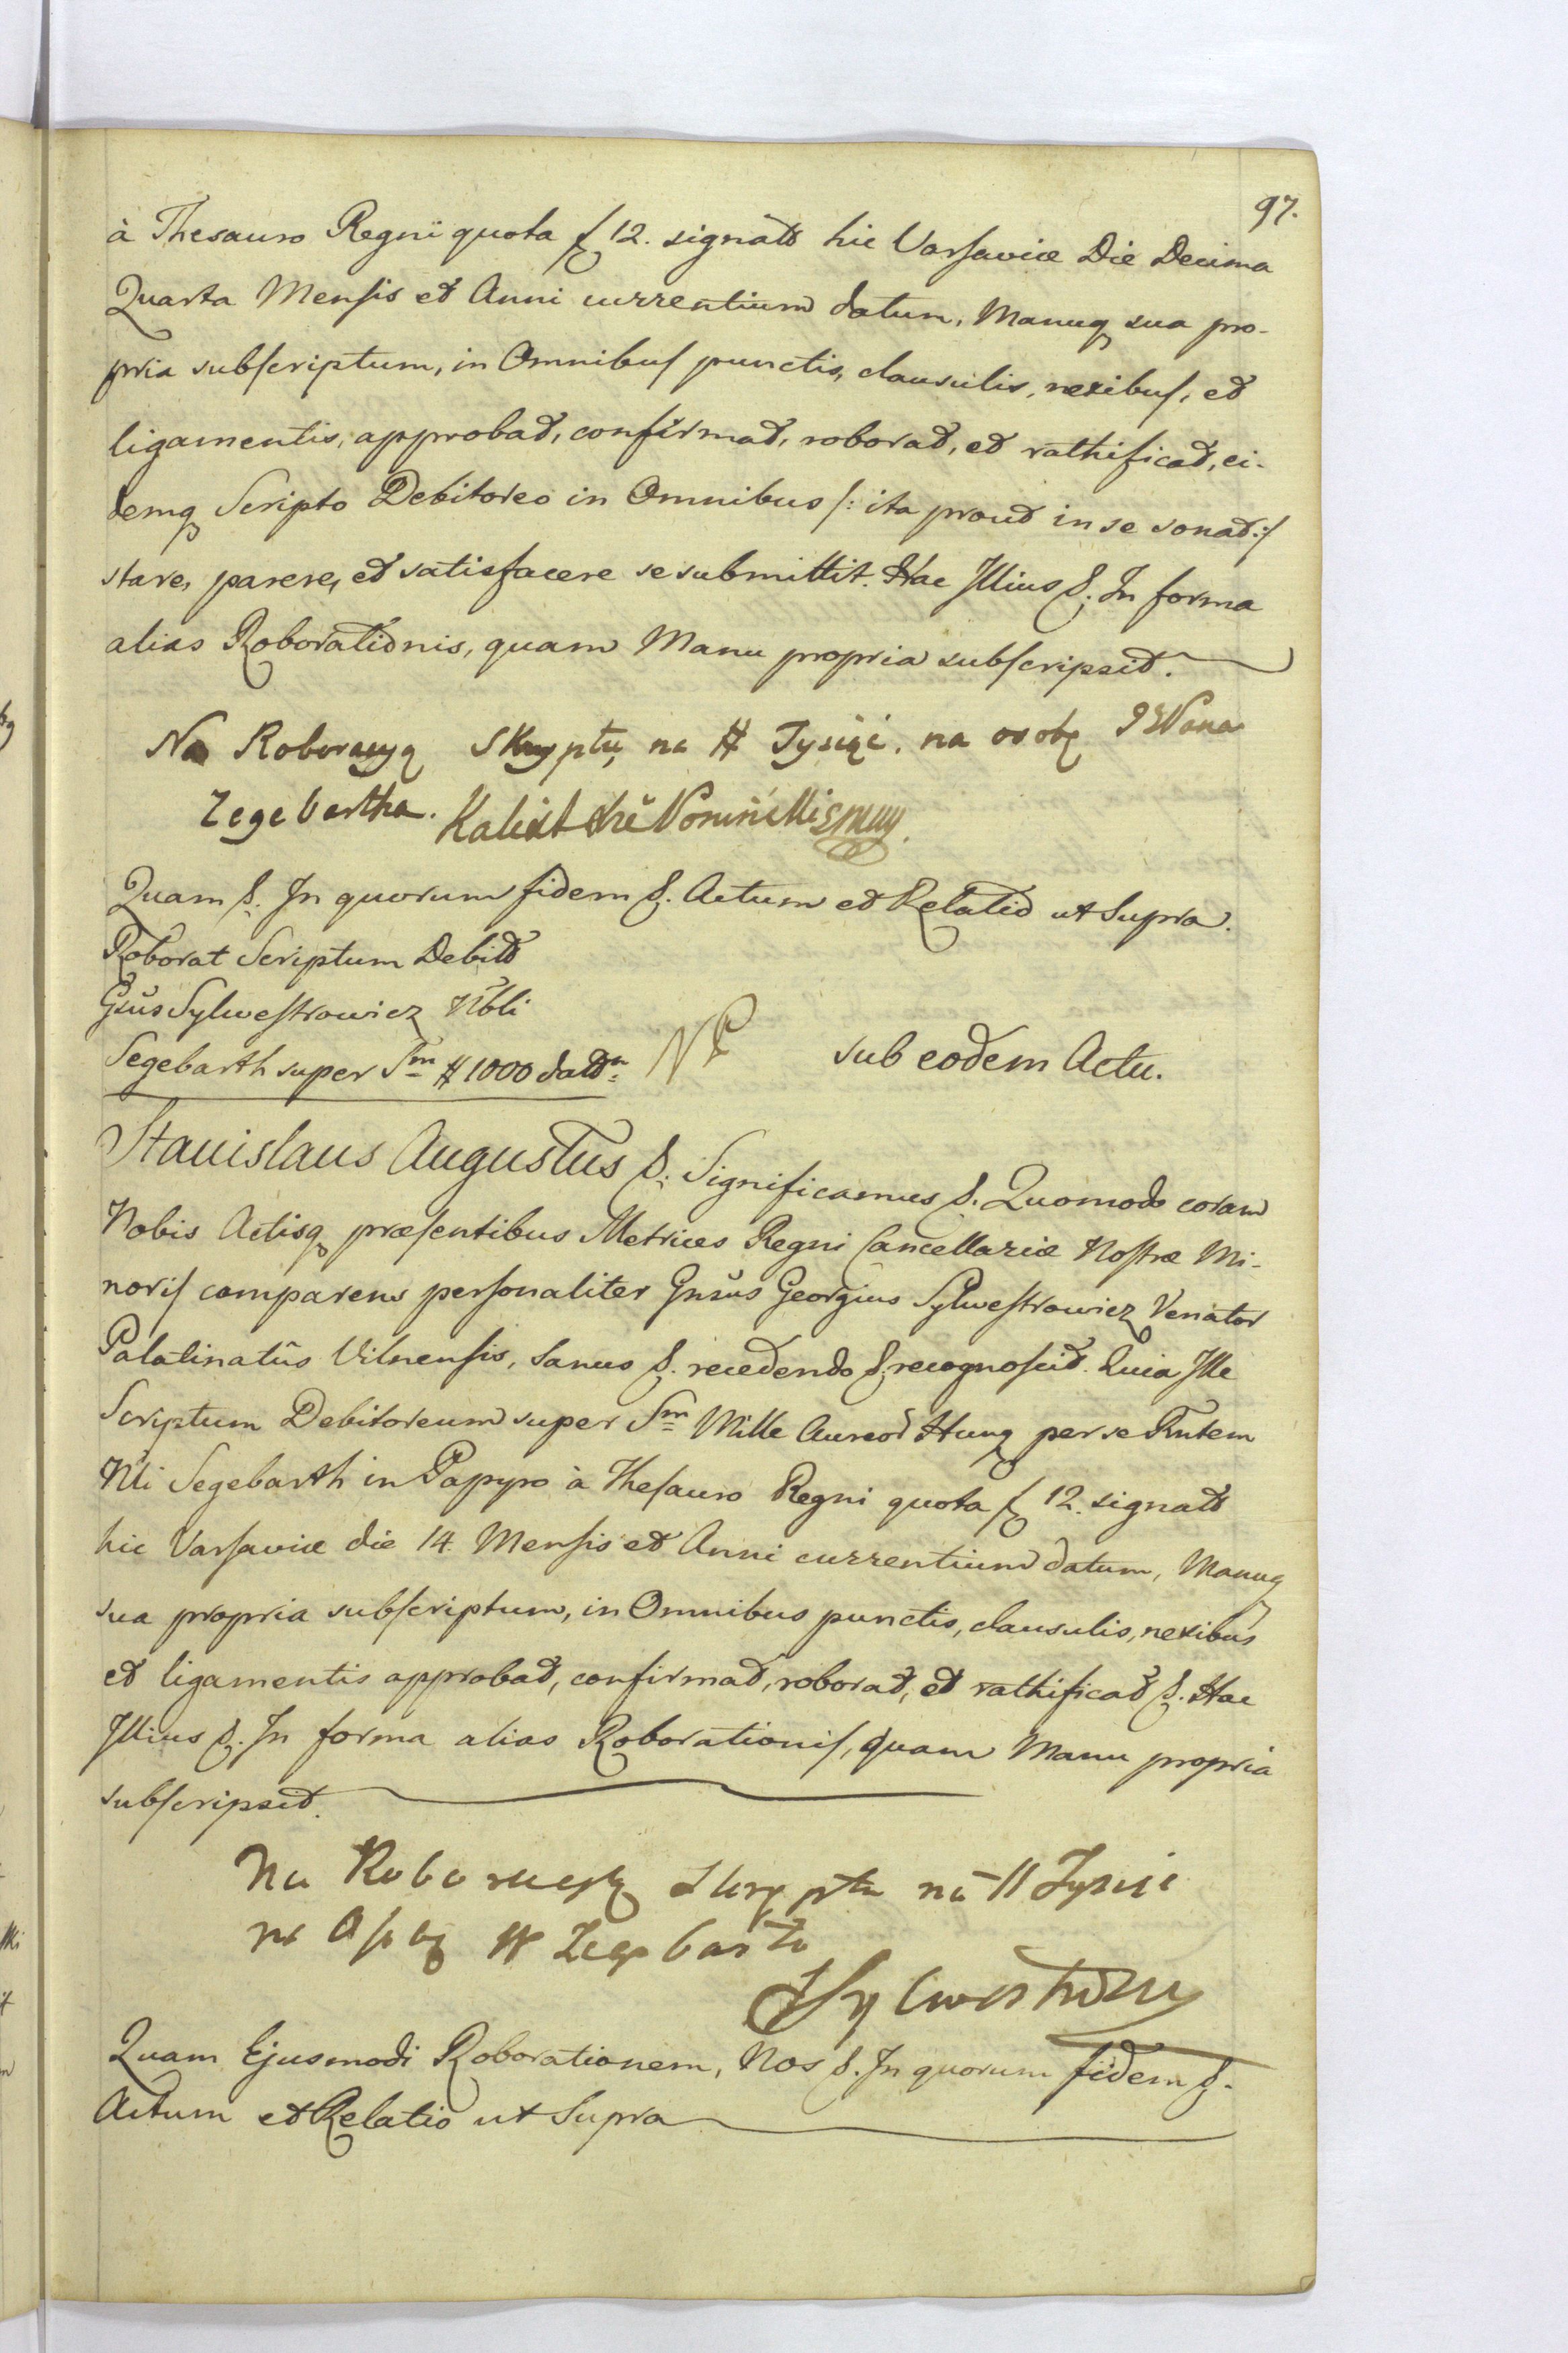 97.
à Thesauro Regni quota f 12. signato hic Varsaviæ Die Decima
Quarta Mensis et Anni currentium datum, Manuq sua pro-
pria subscriptum, in Omnibus punctis, clausulis, nexibus, et
ligamentis, approbat, confirmat, roborat, et rathificat, ei-
demq Scripto Debitoreo in Omnibus /: ita prout in se sonat :/
stare, parere, et satisfacere se submittit. Hac Illius &. In forma
alias Roborationis, quam Manu propria subscripsit.
Na Roboracyą Skryptu na # Tysiąc. na osobę
Zegebartha. Kalixt
Quam &. In quorum fidem &. Actum et Relatio ut Supra.
Roborat Scriptum Debito
Gsus Sylwestrowicz Nbli
Segebarth super Sm # 1000 dato
sub eodem Actu.
Stanislaus Augustus &. Significamus &. Quomodo coram
Nobis Actisq præsentibus Metrices Regni Cancellariæ Nostræ Mi-
noris comparens personaliter Gnsus Georgius Sylwestrowicz Venator
Palatinatûs Vilnensis, Sanus &. recedendo &. recognoscit. Quia Ille
Scriptum Debitoreum super Sm Mille Aureor Hung per se Rntem
Nli Segebarth in Papyro à Thesauro Regni quota f 12. signato
hic Varsaviæ die 14. Mensis et Anni currentium datum, Manuq
sua propria subscriptum, in Omnibus punctis, clausulis, nexibus
et ligamentis approbat, confirmat, roborat, et rathificat &. Hac
Illius &. In forma alias Roborationis, quam Manu propria
subscripsit.
Na Roboracyą Skryptu na # Tysiąc
na Osobę
Quam Ejusmodi Roborationem, Nos &. In quorum fidem &.
Actum et Relatio ut Supra